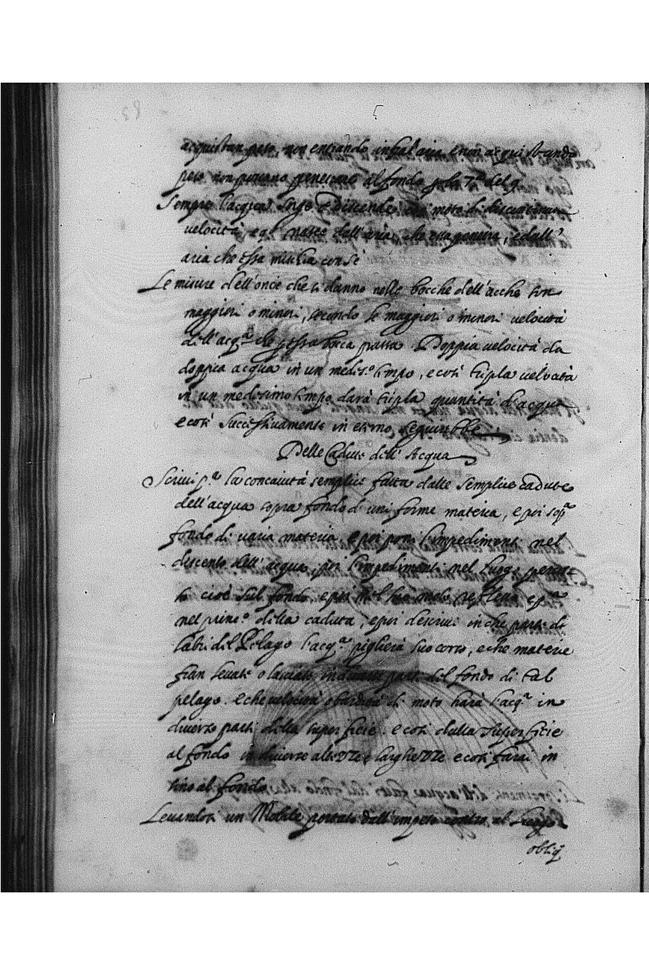 acquistan peso, non entrando infral aria, e non acquistando
peso non possano penetrare al fondo
Sempre l'acqua surge e discende moto di disces
velocità, e ql nasce dall'aria, che sua genera, e dall'
aria che essa mischia con se
Le misure dell'oncie che si danno nelle bocche dell'acche son
maggiori o minori, secondo le maggiori o minori velocità
dell'acqᵃ che p essa bocca passa. Doppia velocità da
doppia acqua in un medesᵒ tempo, e così tripla velocità
in un medesimo tempo darà tripla quantità d'acqua
e così successivamente in eterno seguirebbe
Delle Cadute dell' Acqua
Scrivi pᵃ la concavità semplice fatta dalle semplice cadute
dell'acqua sopra fondo di uni forme materia, e poi sopᵃ
fondo di varia materia, e poi poni l'impedimenti nel
descenso dell'acqua, poi l'impedimenti nel luogo percos
so cioè sul fondo, e poi nel suo moto reflesso
nel prinᵒ della caduta, e poi descrivi in che parte di
labri del Pelago l'acqᵃ piglierà suo corso, e che materie
fian levate o lasciate in diverse parti del fondo di tal
pelago. e che velocità o tardità di moto harà l'acqᵃ in
diverse parti della superficie. e così dalla superficie
al fondo in diverse altezze, larghezze e così farai in
sino al fondo
Levandosi un Mobile portato dall'impeto contro al luogo
obliq